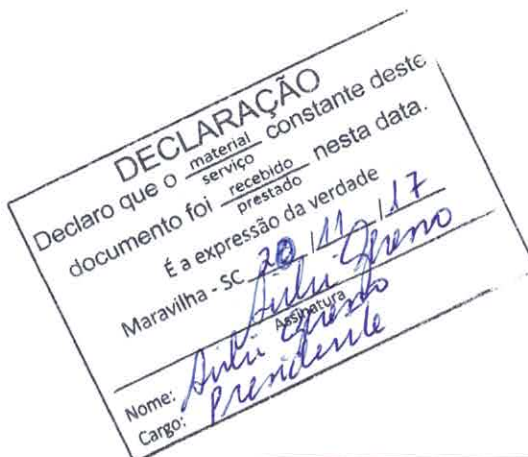 DECLARAÇÃO
Declaro que o material constante deste
serviço
documento foi recebido nesta data.
prestado
É a expressão da verdade
Maravilha - SC 20/11/17
Assinatura
Nome:
Cargo: Presidente